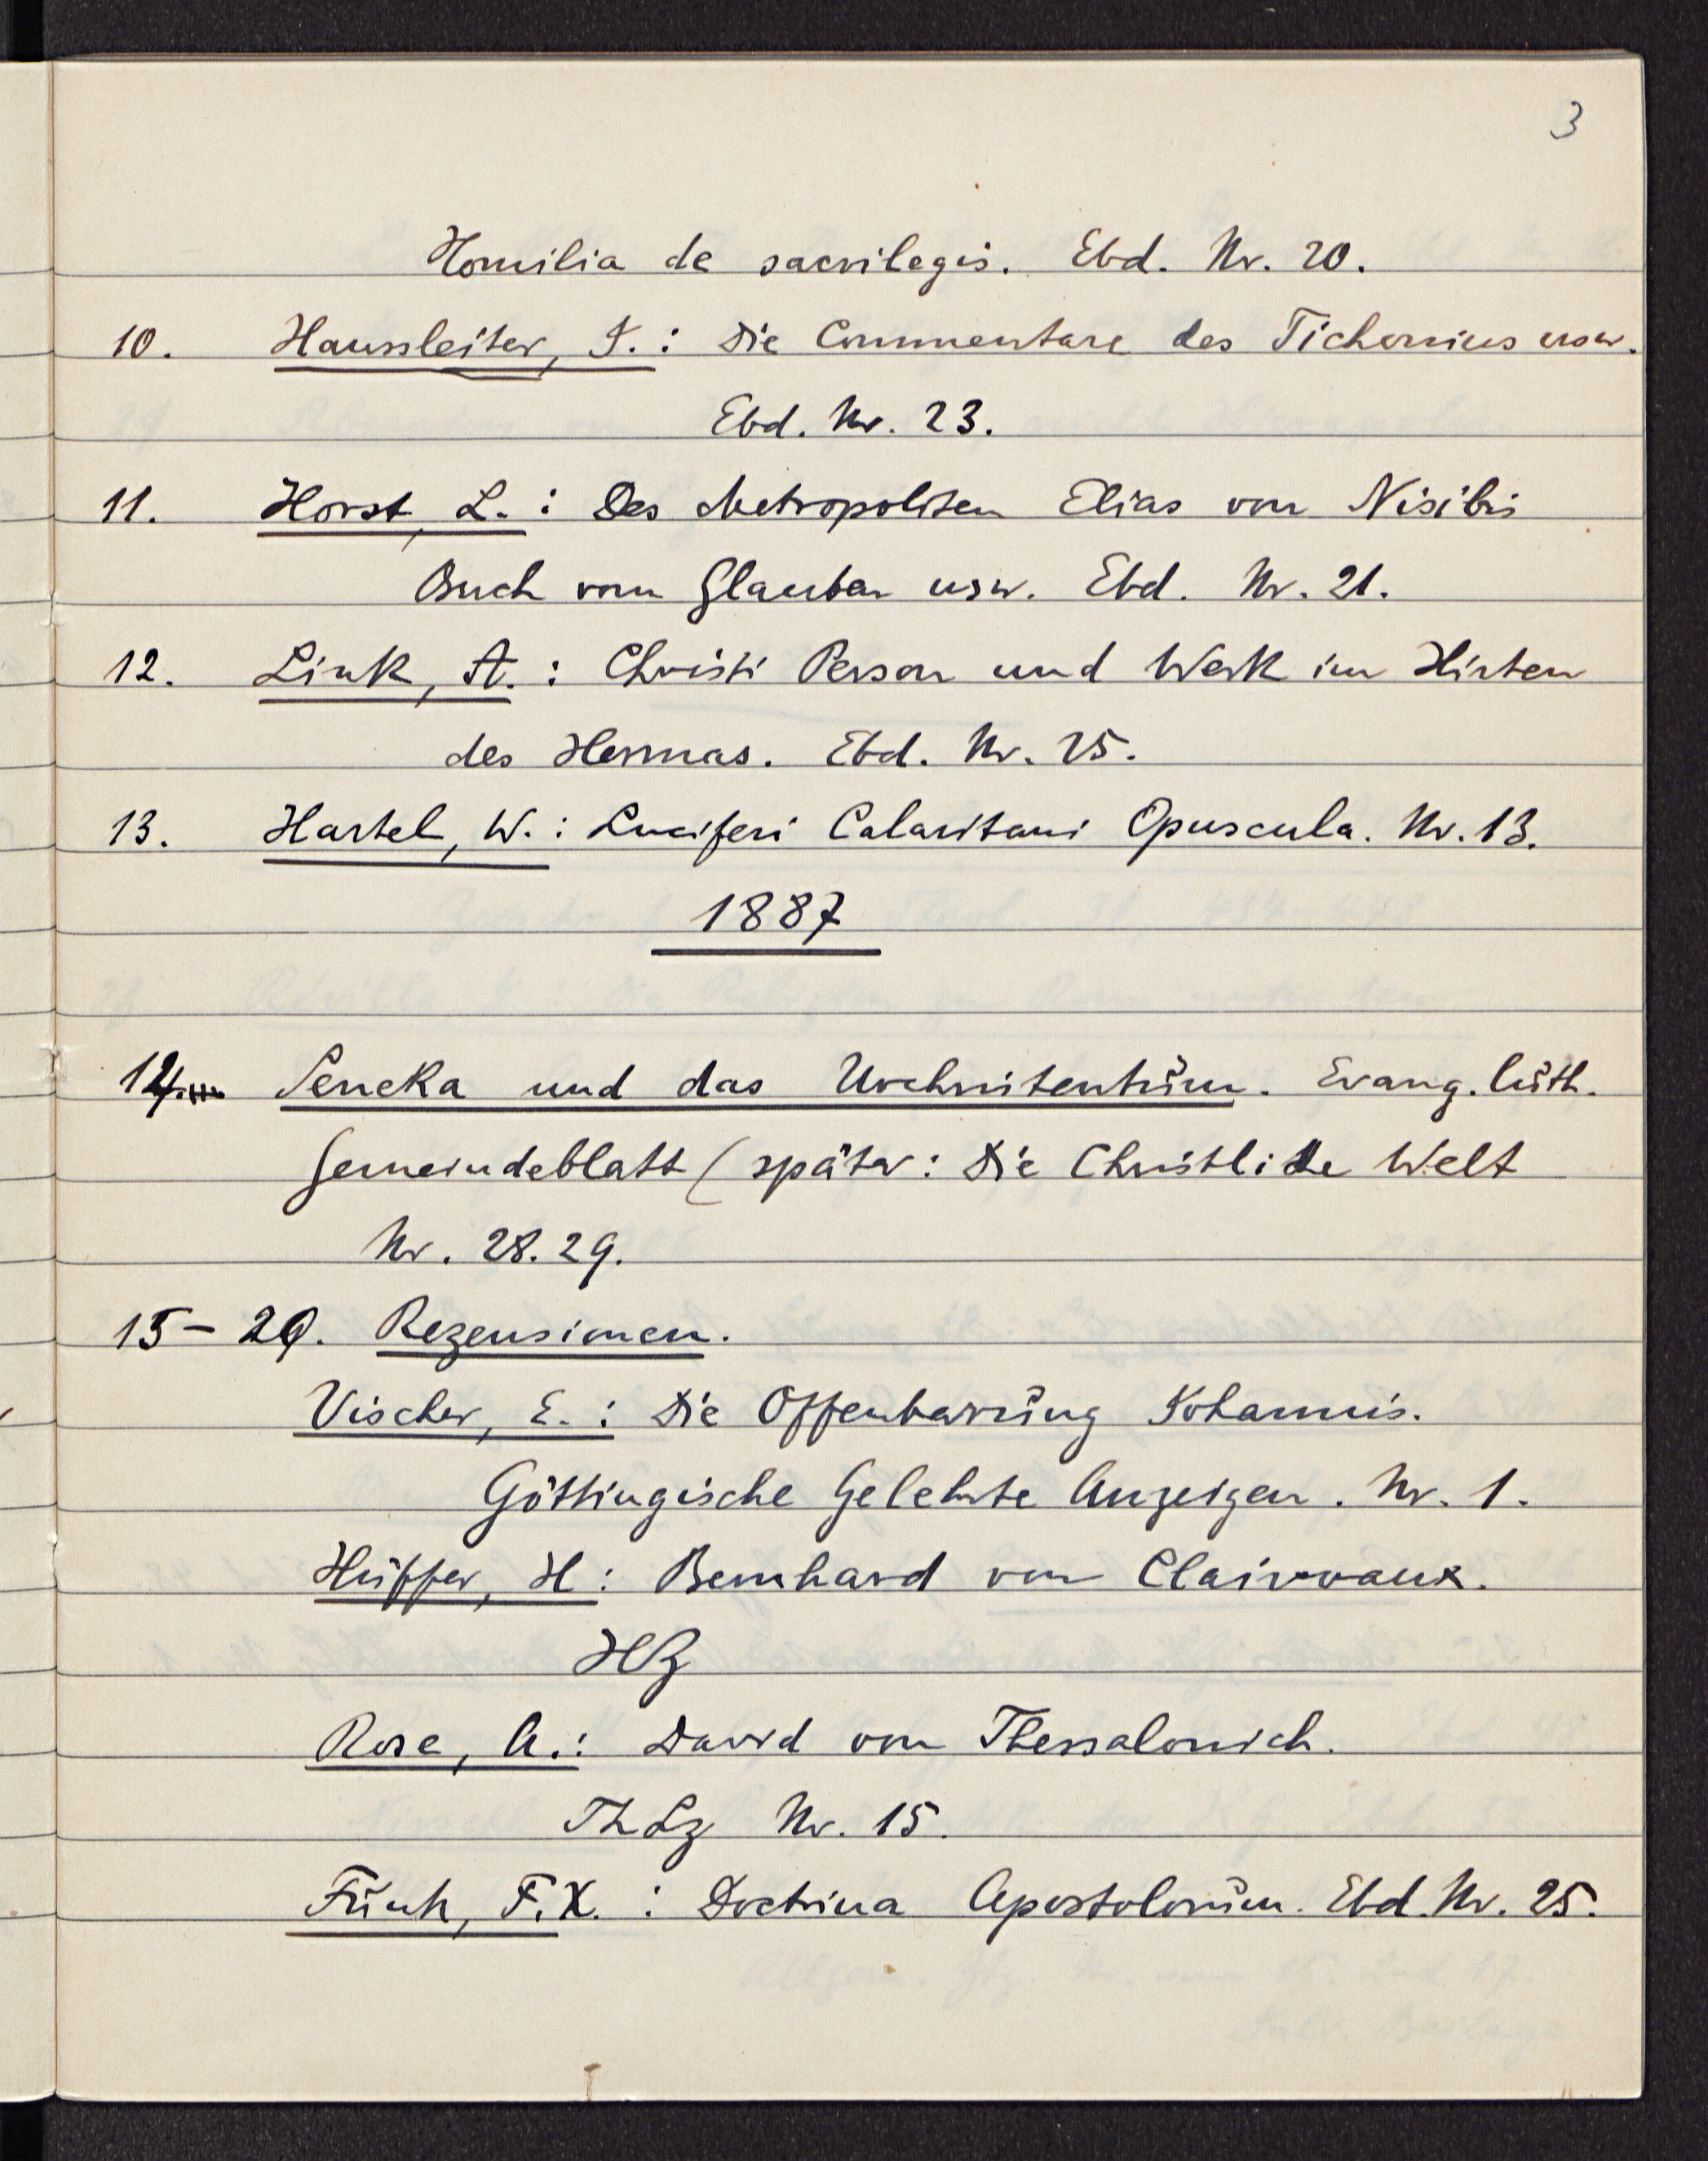 3
Homilia de sacrilegis. Ebd. Nr. 20.
10. Haussleiter, J.: Die Commentare des Tichonius usw.
Ebd. Nr. 23.
11. Horst, L.: Des Metropoliten Elias von Nisibis
Buch vom Glauben usw. Ebd. Nr. 21.
12. Link, A.: Christi Person und Werk im Hirten
des Hermas. Ebd. Nr. 25.
13. Hartel, W.: Luciferi Calaritani Opuscula. Nr. 13.
1887
14. Seneka und das Urchristentum. Evang. luth.
Gemeindeblatt (später: Die Christliche Welt
Nr. 28.29.
15-29. Rezensionen.
Vischer, E.: Die Offenbarung Johannis.
Göttingische Gelehrte Anzeigen. Nr. 1.
Hüffer, H: Bernhard von Clairvaux.
HZ
Rose, A.: David von Thessalonich.
ThLz Nr. 15.
Funk, F.X.: Doctrina Apostolorum. Ebd. Nr. 25.